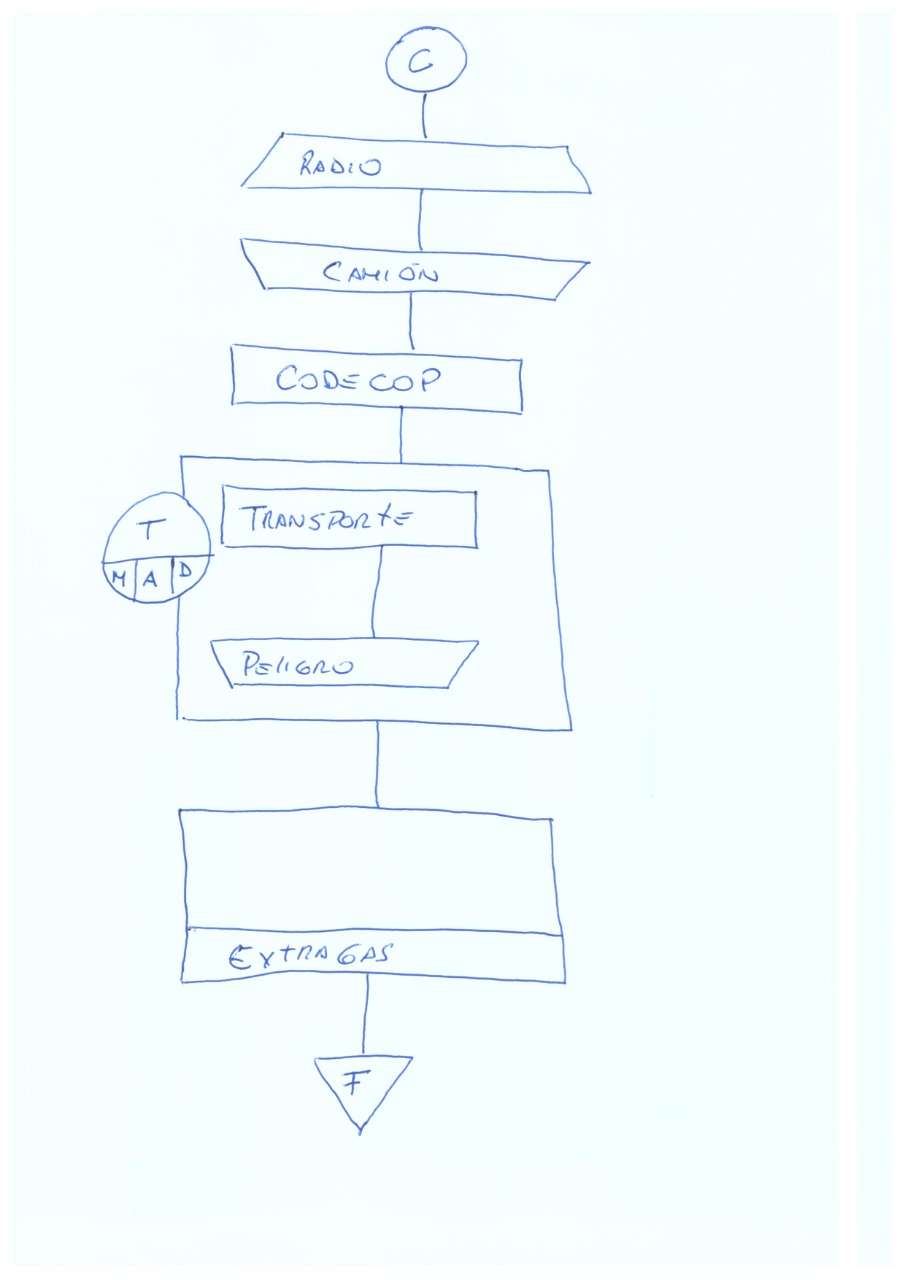 C
RADIO
CAMIÓN
CODECOP
TRANSPORTE
T
M A D
PELIGRO
EXTRAGAS
F